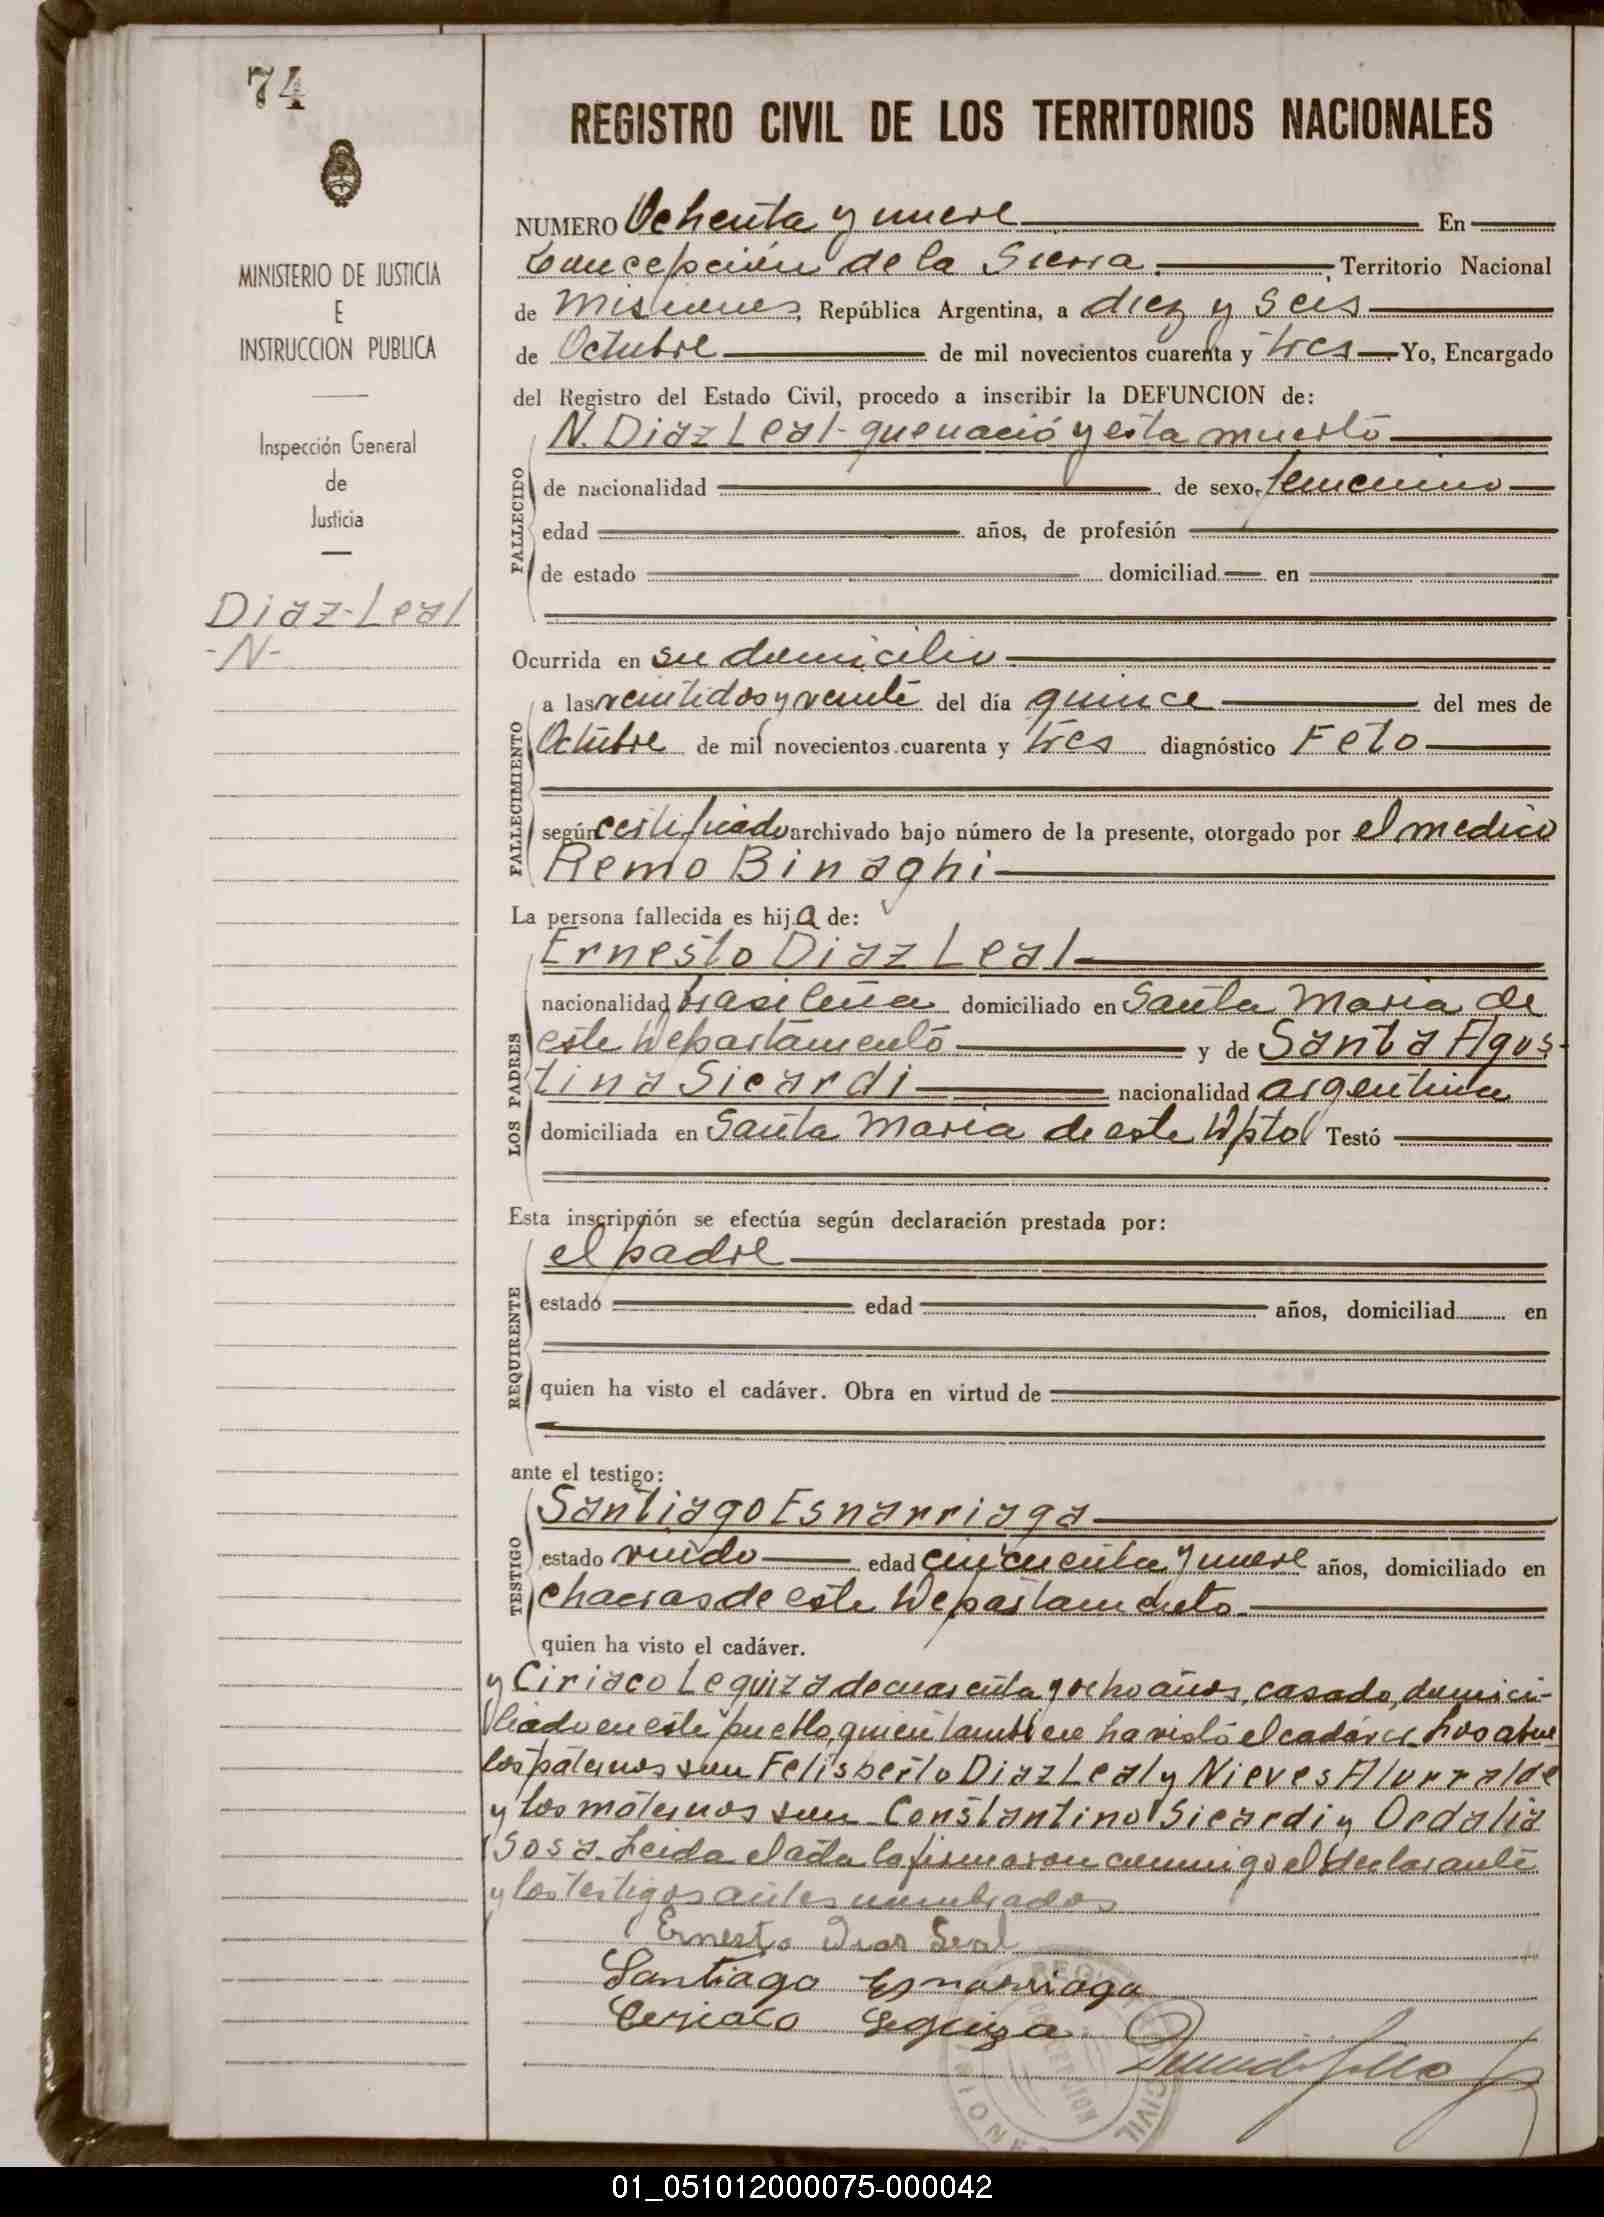 74
REGISTRO CIVIL DE LOS TERRITORIOS NACIONALES
MINISTERIO DE JUSTICIA
E
INSTRUCCION PUBLICA
Inspección General
de
Justicia
Diaz-Leal
-N-
NUMERO Ochenta y nueve En
Concepción de la Sierra. Territorio Nacional
de Misiones, República Argentina, a diez y seis
de Octubre de mil novecientos cuarenta y tres. Yo, Encargado
del Registro del Estado Civil, procedo a inscribir la DEFUNCION de:
FALLECIDO
N. Diaz Leal- que nació y esta muerto
de nacionalidad de sexo, femenino
edad años, de profesión
de estado domiciliad en
Ocurrida en su domicilio
FALLECIMIENTO
a las veintidos y veinte del día quince del mes de
Octubre de mil novecientos cuarenta y tres diagnóstico Feto
según certificado archivado bajo número de la presente, otorgado por el medico
Remo Binaghi
La persona fallecida es hija de:
LOS PADRES
Ernesto Diaz Leal
nacionalidad brasileña domiciliado en Santa Maria de
este Departamento y de Santa Agus-
tina Sicardi nacionalidad argentina
domiciliada en Santa Maria de este Dpto. Testó
Esta inscripción se efectúa según declaración prestada por:
REQUIRENTE
el padre
estado edad años, domiciliad en
quien ha visto el cadáver. Obra en virtud de
ante el testigo:
TESTIGO
Santiago Esnarriaga
estado viudo edad cincuenta y nueve años, domiciliado en
chacras de este Departamento.
quien ha visto el cadáver.
y Ciriaco Leguiza de cuarenta y ocho años, casado, domici-
liado en este pueblo, quien tambien ha visto el cadáver. Los abue
los paternos son Felisberto Diaz Leal y Nieves Alurralde
y los maternos son Constantino Sicardi y Ordalia
Sosa. Leida el acta la firmaron conmigo el declarante
y los testigos antes nombrados
Ernesto Dias Leal
Santiago Esnarriaga
Ceriaco Leguiza
REGISTRO CIVIL
CONCEPCION
MISIONES
01_051012000075-000042